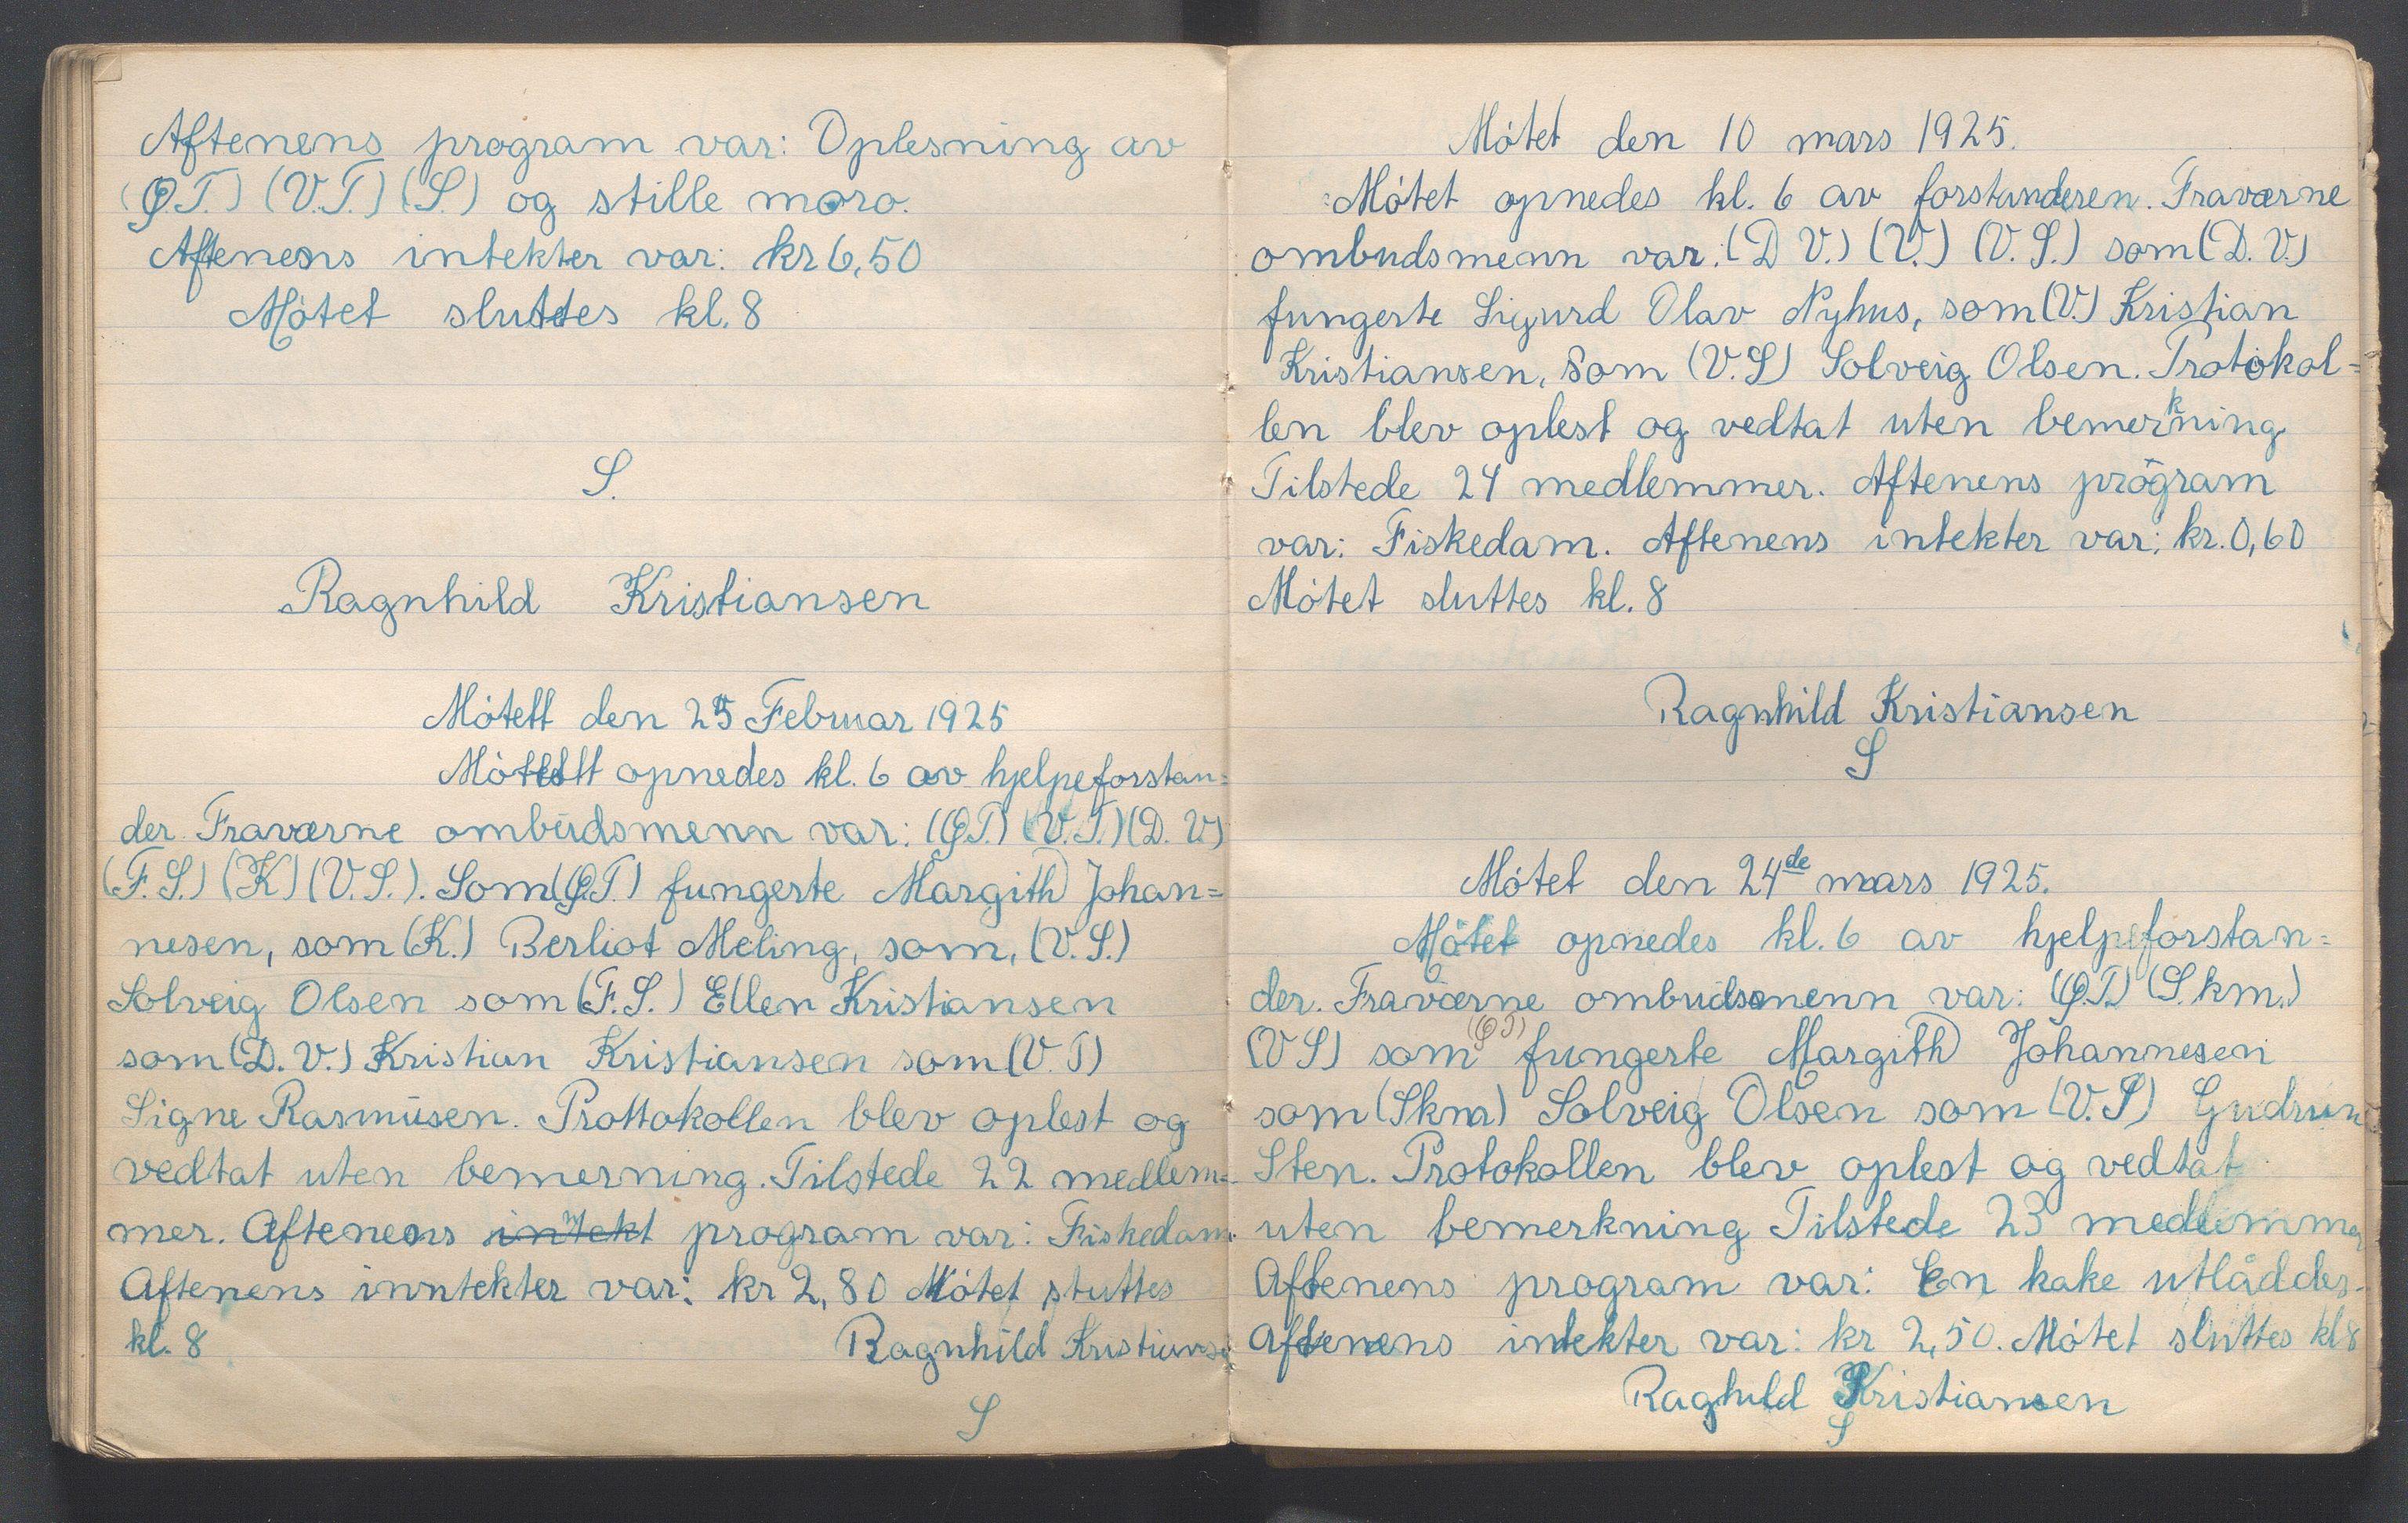 Aftenens program var: Oplesning av
(Ø.T.) (V.T.) (S.) og stille moro.
Aftenens intekter var: kr 6,50
Møtet sluttes kl. 8
S.
Ragnhild Kristiansen
Møtett den 25 Februar 1925
Møtett opnedes kl. 6 av hjelpeforstan=
der. Fraværne ombudsmenn var: (Ø.T.) (V.T.) (D.V.)
(F.S.) (K) (V.S.). Som (Ø.T.) fungerte Margith Johan=
nesen, som (K.) Berliot Meling, som, (V.S.)
Solveig Olsen som (F.S.) Ellen Kristiansen
som (D.V.) Kristian Kristiansen som (V.T)
Signe Rasmusen. Prottokollen blev oplest og
vedtat uten bemerning. Tilstede 22 medlem=
mer. Aftenens inntekt program var: Fiskedam.
Aftenens inntekter var: kr 2,80 Møtet sluttes
kl. 8 Ragnhild Kristianse
S
Møtet den 10 mars 1925.
Møtet opnedes kl. 6 av forstanderen. Fraværne
ombudsmenn var: (D V.) (V.) (V.S.) som (D.V.)
fungerte Sigurd Olav Nyhus, som (V.) Kristian
Kristiansen, som (V.S) Solveig Olsen. Protokol=
len blev oplest og vedtat uten bemerkning
Tilstede 24 medlemmer. Aftenens program
var: Fiskedam. Aftenens intekter var: kr. 0,60
Møtet sluttes kl. 8
Ragnhild Kristiansen
S
Møtet den 24de mars 1925.
Møtet opnedes kl. 6 av hjelpeforstan=
der. Fraværne ombudsmenn var: (Ø.T.) (S.km.)
(V S) som (Ø T) fungerte Margith Johannesen
som (Skm) Solveig Olsen som (V.S) Gudrun
Sten. Protokollen blev oplest og vedtat
uten bemerkning Tilstede 23 medlemmer
Aftenens program var: En kake utlåddes.
Aftenens intekter var: kr 2,50. Møtet sluttes kl 8
Raghild Kristiansen
S